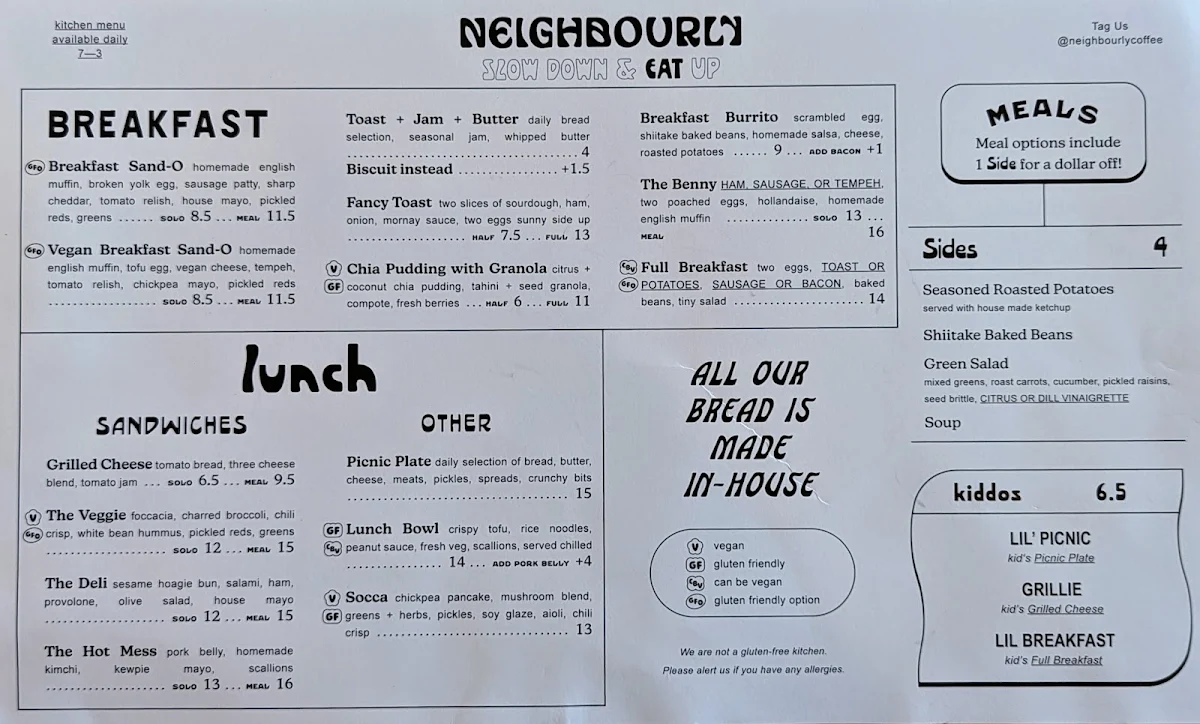 kitchen menu
available daily
7—3
NEIGHBOURLY
SLOW DOWN & EAT UP
Tag Us
@neighbourlycoffee
BREAKFAST
GFO Breakfast Sand-O homemade english
muffin, broken yolk egg, sausage patty, sharp
cheddar, tomato relish, house mayo, pickled
reds, greens ...... SOLO 8.5 ... MEAL 11.5
GFO Vegan Breakfast Sand-O homemade
english muffin, tofu egg, vegan cheese, tempeh,
tomato relish, chickpea mayo, pickled reds
..................... SOLO 8.5 ... MEAL 11.5
Toast + Jam + Butter daily bread
selection, seasonal jam, whipped butter
........................................... 4
Biscuit instead .................. +1.5
Fancy Toast two slices of sourdough, ham,
onion, mornay sauce, two eggs sunny side up
...................... HALF 7.5 ... FULL 13
V Chia Pudding with Granola citrus +
GF coconut chia pudding, tahini + seed granola,
compote, fresh berries ... HALF 6 ... FULL 11
Breakfast Burrito scrambled egg,
shiitake baked beans, homemade salsa, cheese,
roasted potatoes ...... 9 ... ADD BACON +1
The Benny HAM, SAUSAGE, OR TEMPEH,
two poached eggs, hollandaise, homemade
english muffin .............. SOLO 13 ...
MEAL 16
CBV Full Breakfast two eggs, TOAST OR
GFO POTATOES, SAUSAGE OR BACON, baked
beans, tiny salad ...................... 14
MEALS
Meal options include
1 Side for a dollar off!
Sides 4
Seasoned Roasted Potatoes
served with house made ketchup
Shiitake Baked Beans
Green Salad
mixed greens, roast carrots, cucumber, pickled raisins,
seed brittle, CITRUS OR DILL VINAIGRETTE
Soup
lunch
SANDWICHES
Grilled Cheese tomato bread, three cheese
blend, tomato jam ... SOLO 6.5 ... MEAL 9.5
V The Veggie foccacia, charred broccoli, chili
GFO crisp, white bean hummus, pickled reds, greens
...................... SOLO 12 ... MEAL 15
The Deli sesame hoagie bun, salami, ham,
provolone, olive salad, house mayo
...................... SOLO 12 ... MEAL 15
The Hot Mess pork belly, homemade
kimchi, kewpie mayo, scallions
...................... SOLO 13 ... MEAL 16
OTHER
Picnic Plate daily selection of bread, butter,
cheese, meats, pickles, spreads, crunchy bits
........................................ 15
GF Lunch Bowl crispy tofu, rice noodles,
CBV peanut sauce, fresh veg, scallions, served chilled
................. 14 ... ADD PORK BELLY +4
V Socca chickpea pancake, mushroom blend,
GF greens + herbs, pickles, soy glaze, aioli, chili
crisp .................................. 13
ALL OUR
BREAD IS
MADE
IN-HOUSE
V vegan
GF gluten friendly
CBV can be vegan
GFO gluten friendly option
We are not a gluten-free kitchen.
Please alert us if you have any allergies.
kiddos 6.5
LIL' PICNIC
kid's Picnic Plate
GRILLIE
kid's Grilled Cheese
LIL BREAKFAST
kid's Full Breakfast